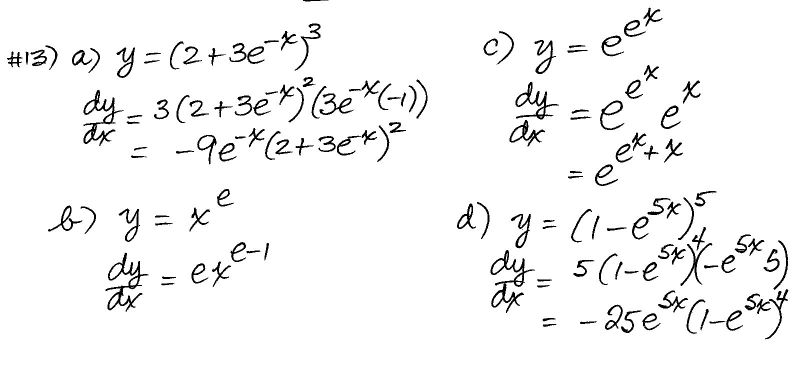 #13) a) y = (2+3e^{-x})^3
dy/dx = 3(2+3e^{-x})^2(3e^{-x}(-1))
= -9e^{-x}(2+3e^{-x})^2
b) y = x^e
dy/dx = ex^{e-1}
c) y = e^{e^x}
dy/dx = e^{e^x} e^x
= e^{e^x+x}
d) y = (1-e^{5x})^5
dy/dx = 5(1-e^{5x})^4(-e^{5x}5)
= -25e^{5x}(1-e^{5x})^4